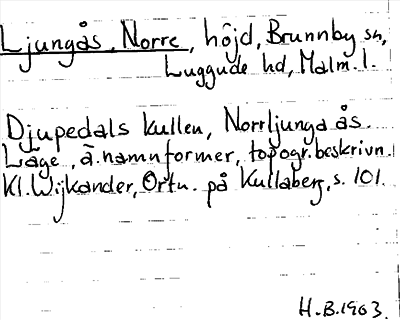 Ljungås, Norre, höjd, Brunnby sn,
Luggude hd, Malm. l.
Djupedals kullen, Norrljunga ås.
Läge, ä. namnformer, topogr. beskrivn.
Kl. Wijkander, Ortn. på Kullaberg, s. 101.
H.B. 1903.